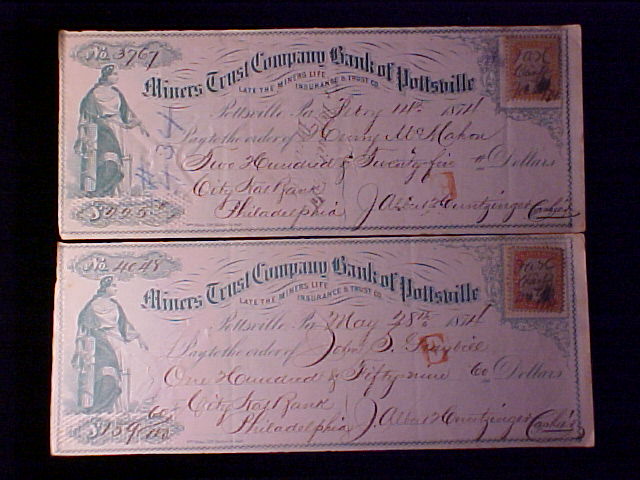 No. 3767
Miners Trust Company Bank of Pottsville
LATE THE MINERS LIFE INSURANCE & TRUST CO.
Pottsville Pa. Febry 14th 1874
Pay to the order of Henry McMahon
Two Hundred & Twenty five Dollars
City Nat Bank
Philadelphia J. Albert Huntzinger Cashier
$225
No. 4048
Miners Trust Company Bank of Pottsville
LATE THE MINERS LIFE INSURANCE & TRUST CO.
Pottsville Pa. May 28th 1874
Pay to the order of John S. Graybill
One Hundred & Fifty nine 60 Dollars
City Nat Bank
Philadelphia J. Albert Huntzinger Cashier
$159 60/100